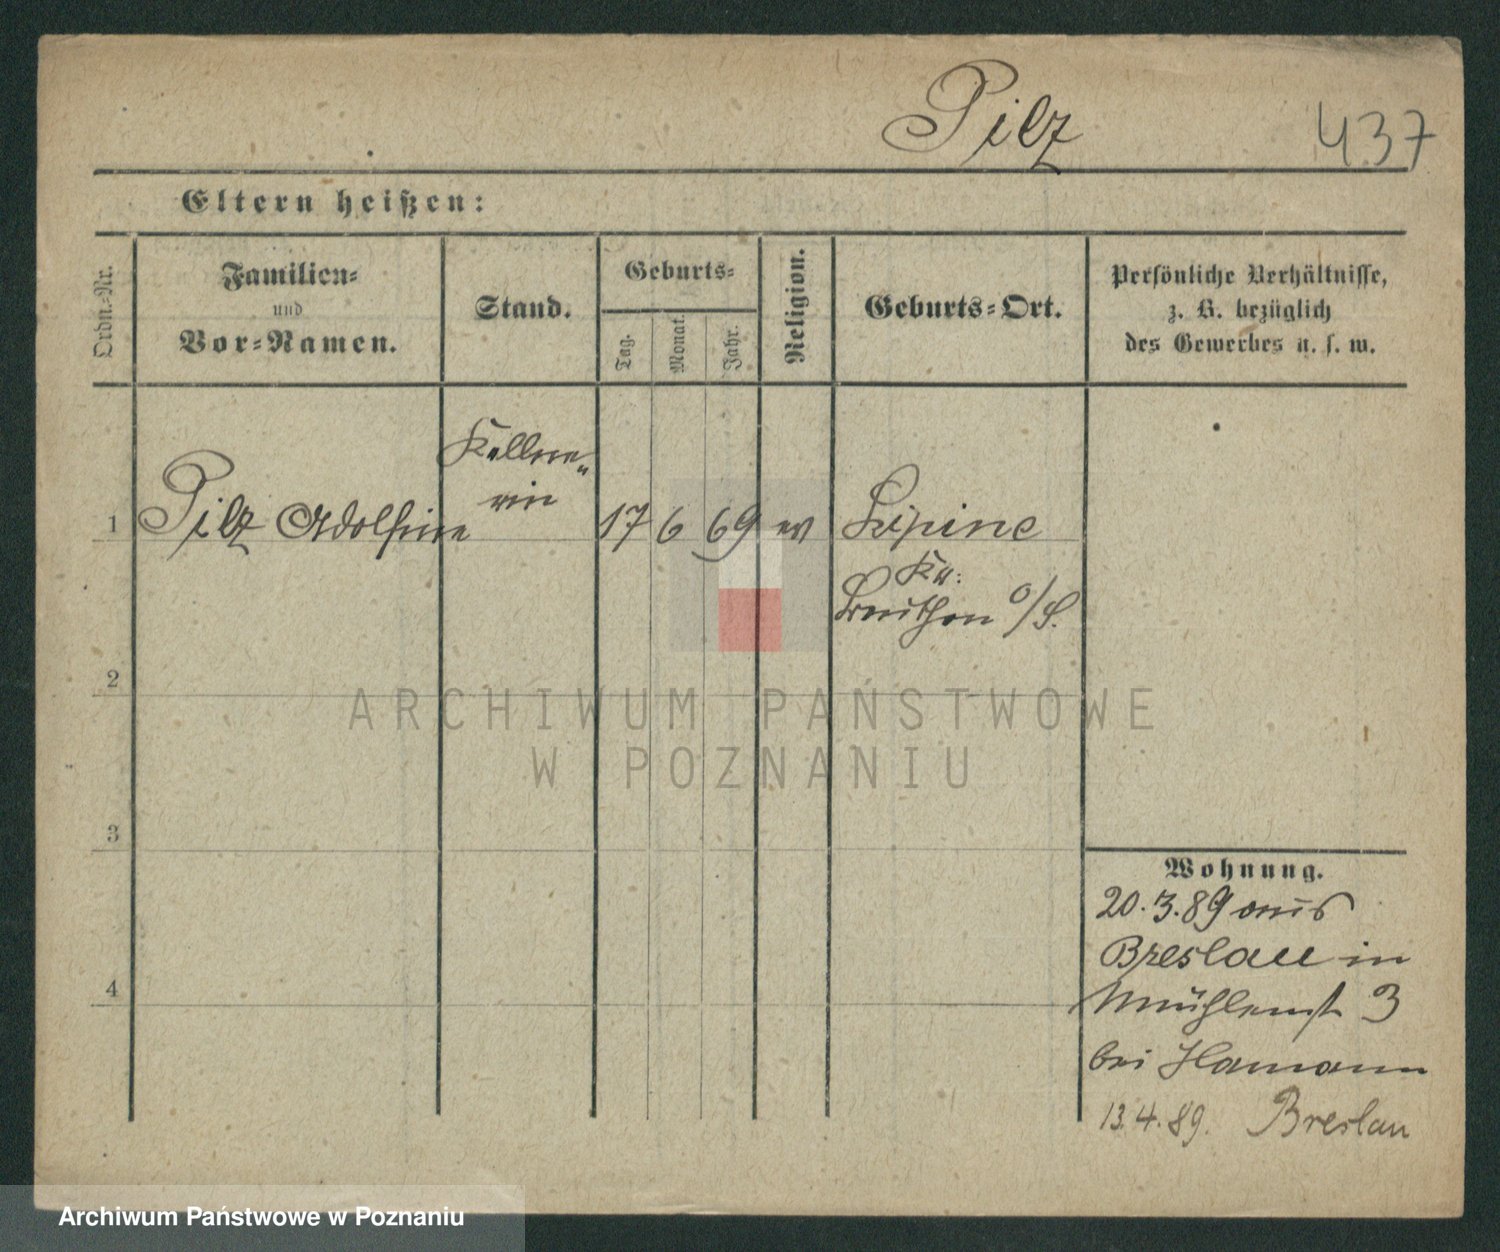 Pilz 437
Eltern heißen:
Ordn.-Nr.
Familien-
und
Vor-Namen.
Stand.
Geburts-
Tag.
Monat.
Jahr.
Religion.
Geburts-Ort.
Persönliche Verhältnisse,
z. B. bezüglich
des Gewerbes u. s. w.
1 Pilz Adolfine
Kellne„
rin
17 6 69 ev
Lipine
Kr:
Beuthen O/S.
2
3
4
Wohnung.
20.3.89 aus
Breslau in
Mühlenst 3
bei Hamann
13.4.89. Breslau
ARCHIWUM PAŃSTWOWE
W POZNANIU
Archiwum Państwowe w Poznaniu